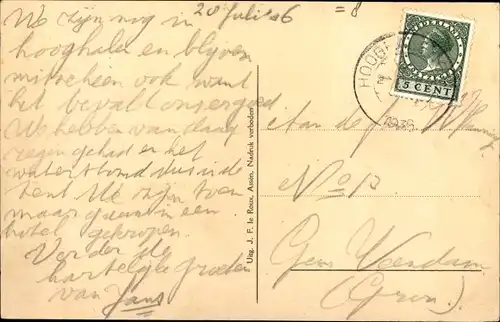 20 Juli '36 = 8
We zijn nog in
hooghalen en blijven
misscheen ook want
het bevalt ons goed
We hebben van daag
regen gehad en het
water stond dus in de
tent We zijn toen
maar gaan in een
hotel gekropen.
Verder de
hartelijke groeten
van Jans
Uitg. J. F. le Roux, Assen, Nadruk verboden
NEDERLAND
5 CENT
HOOGH
1936
Aan de
No 13
Gem Veendam
(Gron.)